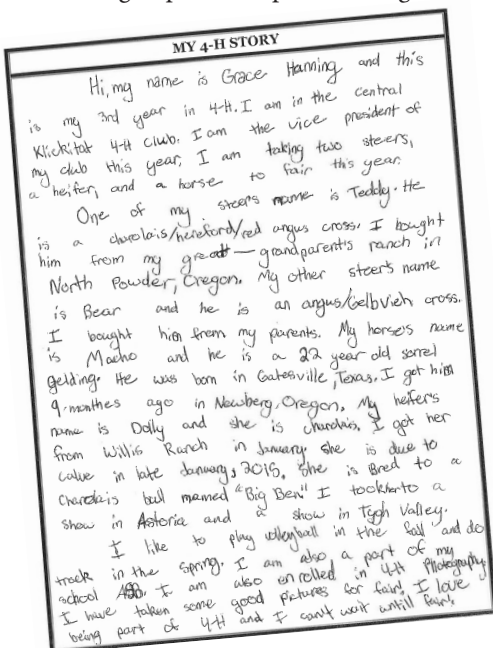 MY 4-H STORY
Hi, my name is Grace Hanning and this
is my 3rd year in 4-H. I am in the central
Klickitat 4-H Club. I am the vice president of
my club this year. I am taking two steers,
a heifer, and a horse to fair this year.
One of my steers name is Teddy. He
is a charolais/hereford/red angus cross. I bought
him from my great-grandparent's ranch in
North Powder, Oregon. My other steer's name
is Bear and he is an angus/Gelbvieh cross.
I bought him from my parents. My horse's name
is Macho and he is a 22 year old sorrel
gelding. He was born in Gatesville, Texas. I got him
9-monthes ago in Newberg, Oregon. My heifer's
name is Dolly and she is charolais. I got her
from Willis Ranch in January. She is due to
calve in late January, 2015. She is Bred to a
Charolais bull mamed "Big Ben" I took her to a
show in Astoria and a show in Tygh Valley.
I like to play volleyball in the fall and do
track in the spring. I am also a part of my
school I am also enrolled in 4-H Photography.
I have taken some good pictures for fair! I love
being part of 4-H and I can't wait untill fair!